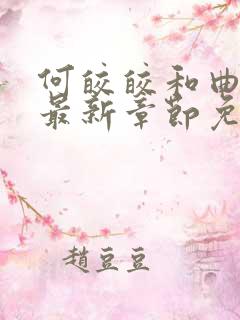 何皎皎和曲
最新章节免
趙豆豆